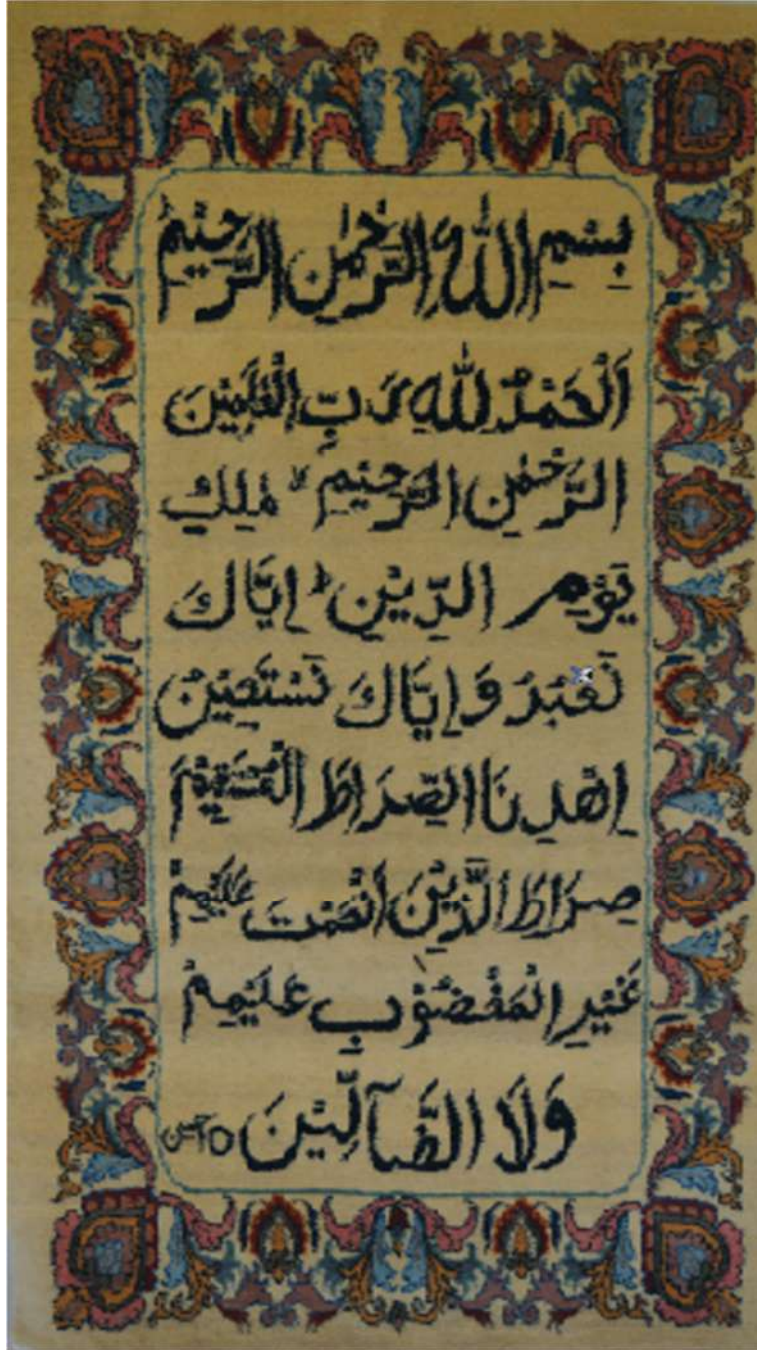 بِسْمِ اللّٰهِ الرَّحْمٰنِ الرَّحِيْمِ
اَلْحَمْدُ لِلّٰهِ رَبِّ الْعٰلَمِيْنَ
الرَّحْمٰنِ الرَّحِيْمِ ۙ مٰلِكِ
يَوْمِ الدِّيْنِ ؕ اِيَّاكَ
نَعْبُدُ وَاِيَّاكَ نَسْتَعِيْنُ
اِهْدِنَا الصِّرَاطَ الْمُسْتَقِيْمَ
صِرَاطَ الَّذِيْنَ اَنْعَمْتَ عَلَيْهِمْ
غَيْرِ الْمَغْضُوْبِ عَلَيْهِمْ
وَلَا الضَّآلِّيْنَ